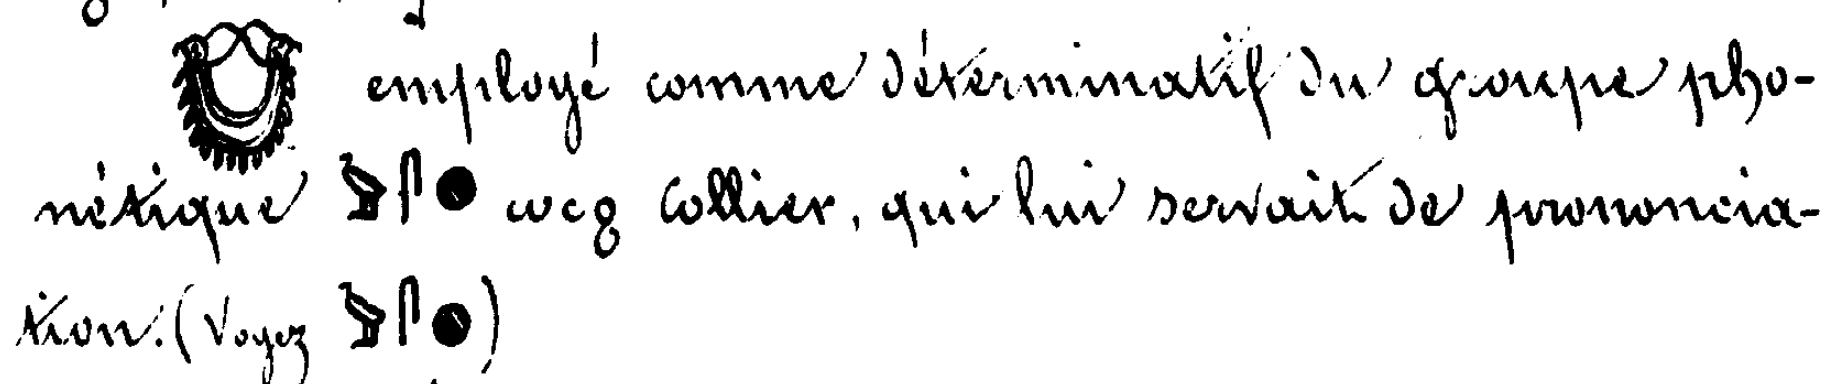 𓋝 employé comme déterminatif du groupe pho-
nétique 𓅱𓋴𓐍 ⲱⲥϧ Collier, qui lui servait de prononcia-
tion. (Voyez 𓅱𓋴𓐍)